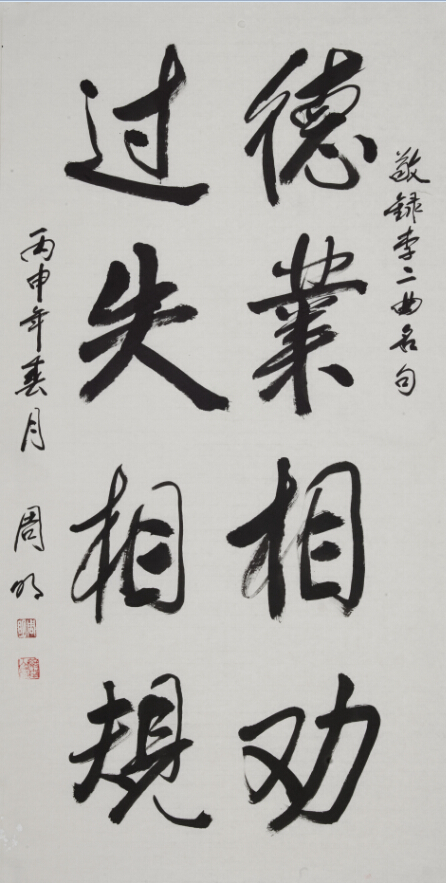 敬録李二曲名句
德業相劝
过失相規
丙申年春月 周明